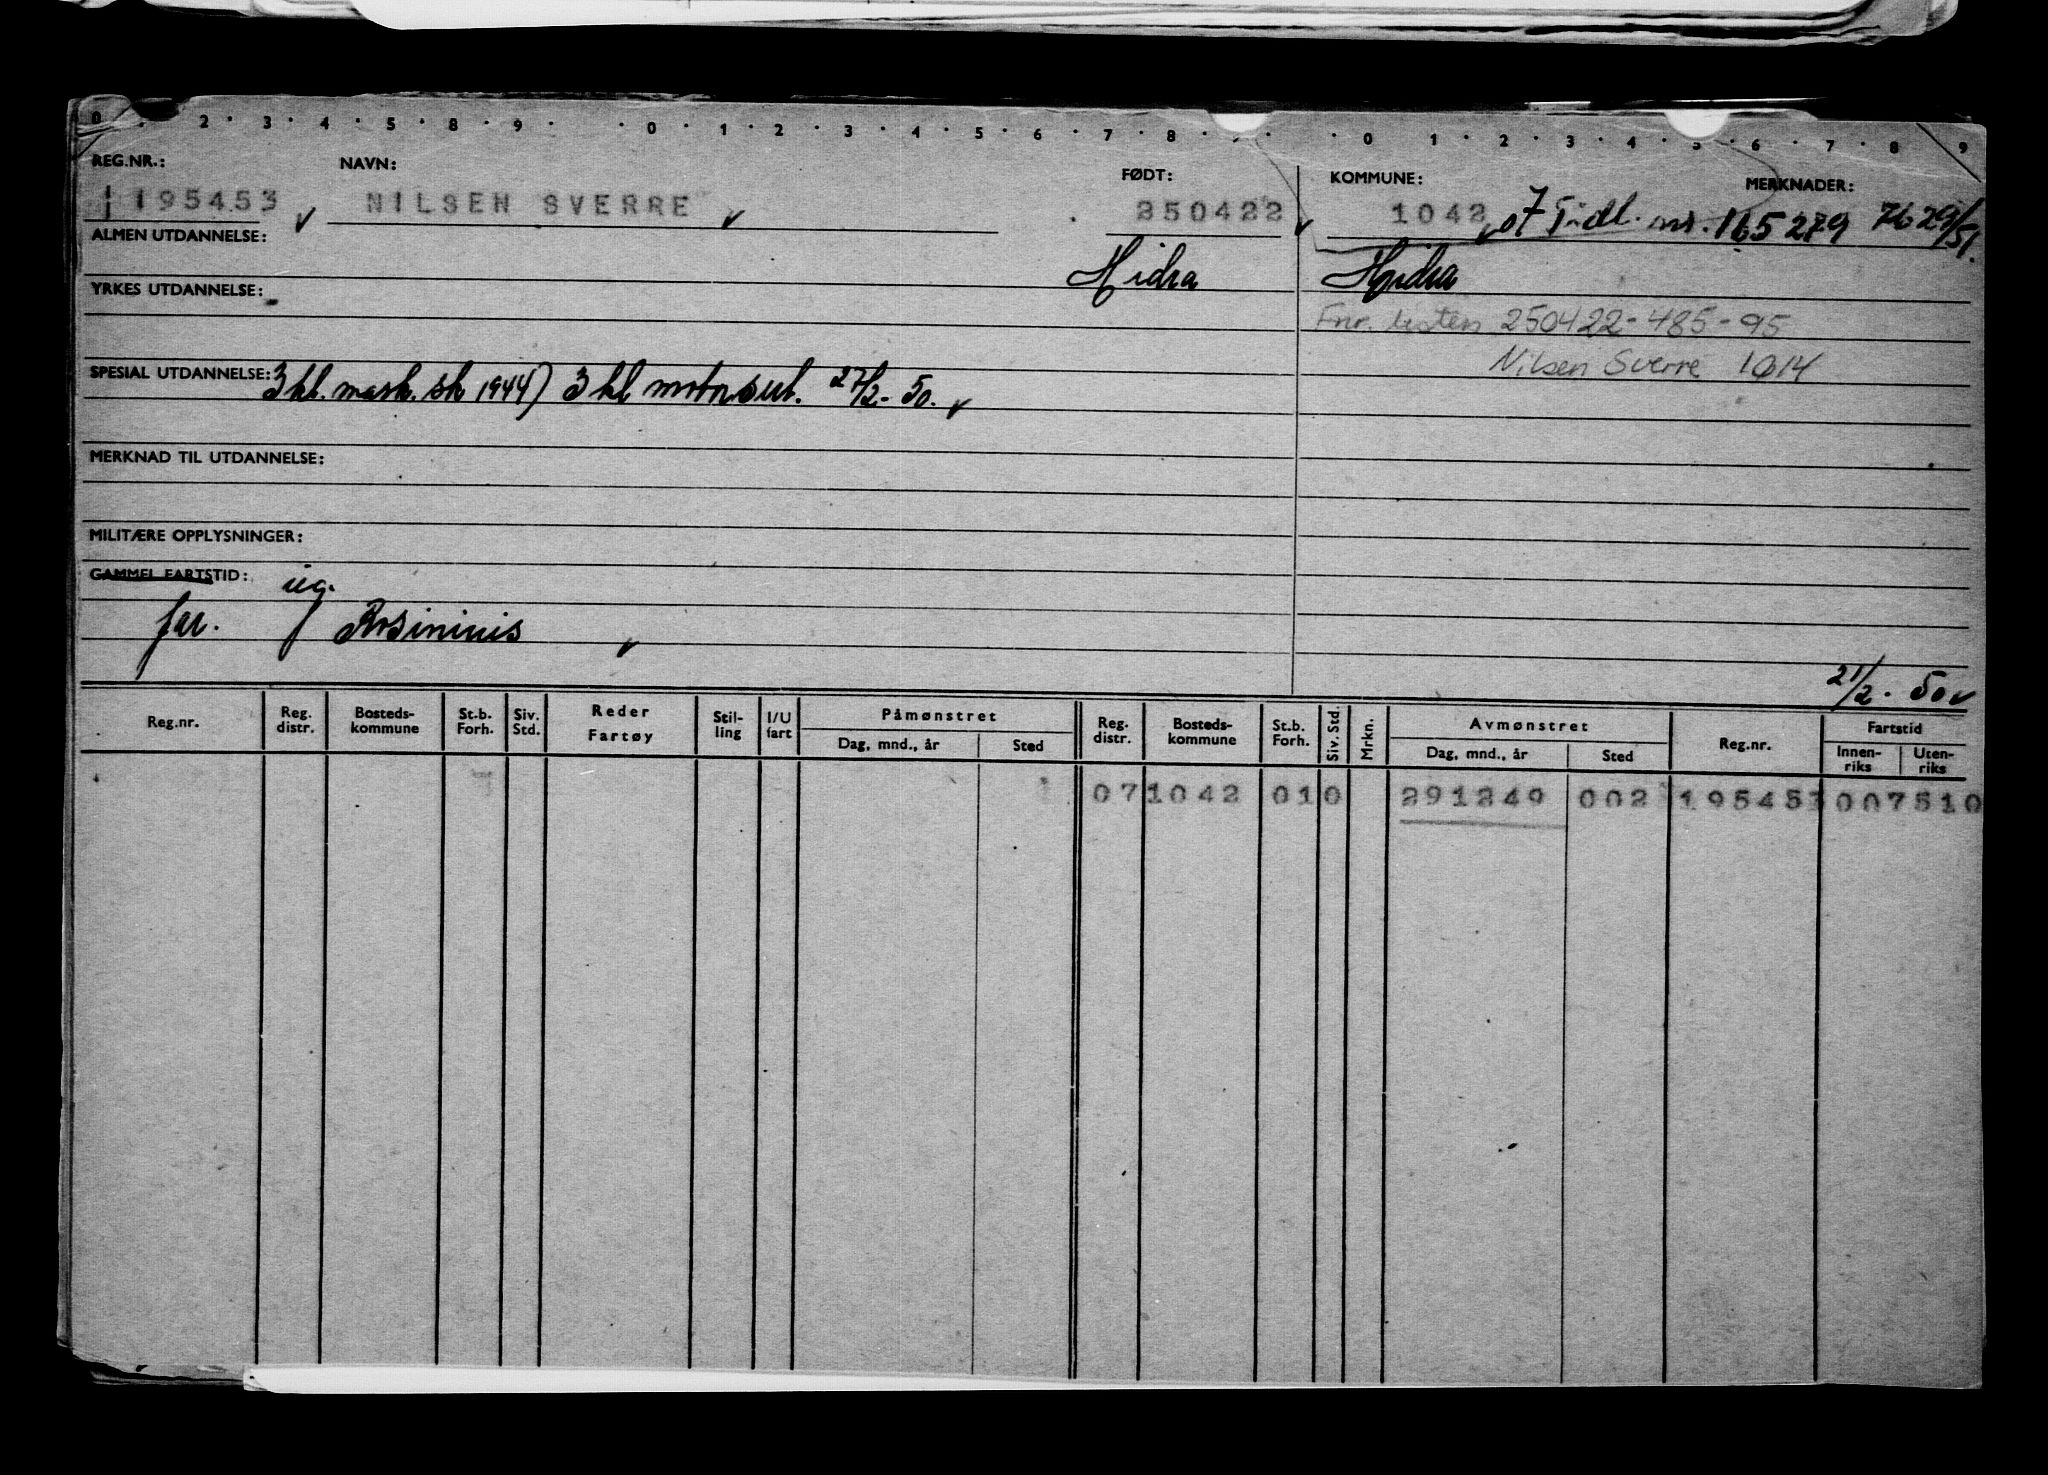 0 . 2 . 3 . 4 . 5 . 8 . 9 . . 0 . 1 . 2 . 3 . 4 . 5 . 6 . 7 . 8 . . . 0 . 1 . 2 . 3 . 4 . 5 . 6 . 7 . 8 . 9
REG.NR.: NAVN: FØDT: KOMMUNE: MERKNADER:
195453 NILSEN SVERRE 250422 1042 07 Tidl. nr. 165279 76 29/1 51.
ALMEN UTDANNELSE: Hidra Hidra
YRKES UTDANNELSE:
Fnr. listen 250422-485-95
Nilsen Sverre 1014
SPESIAL UTDANNELSE: 3 kl. mask. sk 1944) 3 kl motorsert. 27/2- 50.
MERKNAD TIL UTDANNELSE:
MILITÆRE OPPLYSNINGER:
GAMMEL FARTSTID: ug.
far.
21/2. 50
Reg.nr. Reg. distr. Bosteds-kommune St.b. Forh. Siv. Std. Reder Fartøy Stil-ling I/U fart Påmønstret Dag, mnd., år Sted Reg. distr. Bosteds-kommune St.b. Forh. Siv. Std. Mrkn. Avmønstret Dag, mnd., år Sted Reg.nr. Fartstid Innen-riks Uten-riks
07 1042 01 0 291249 002 195453 007510